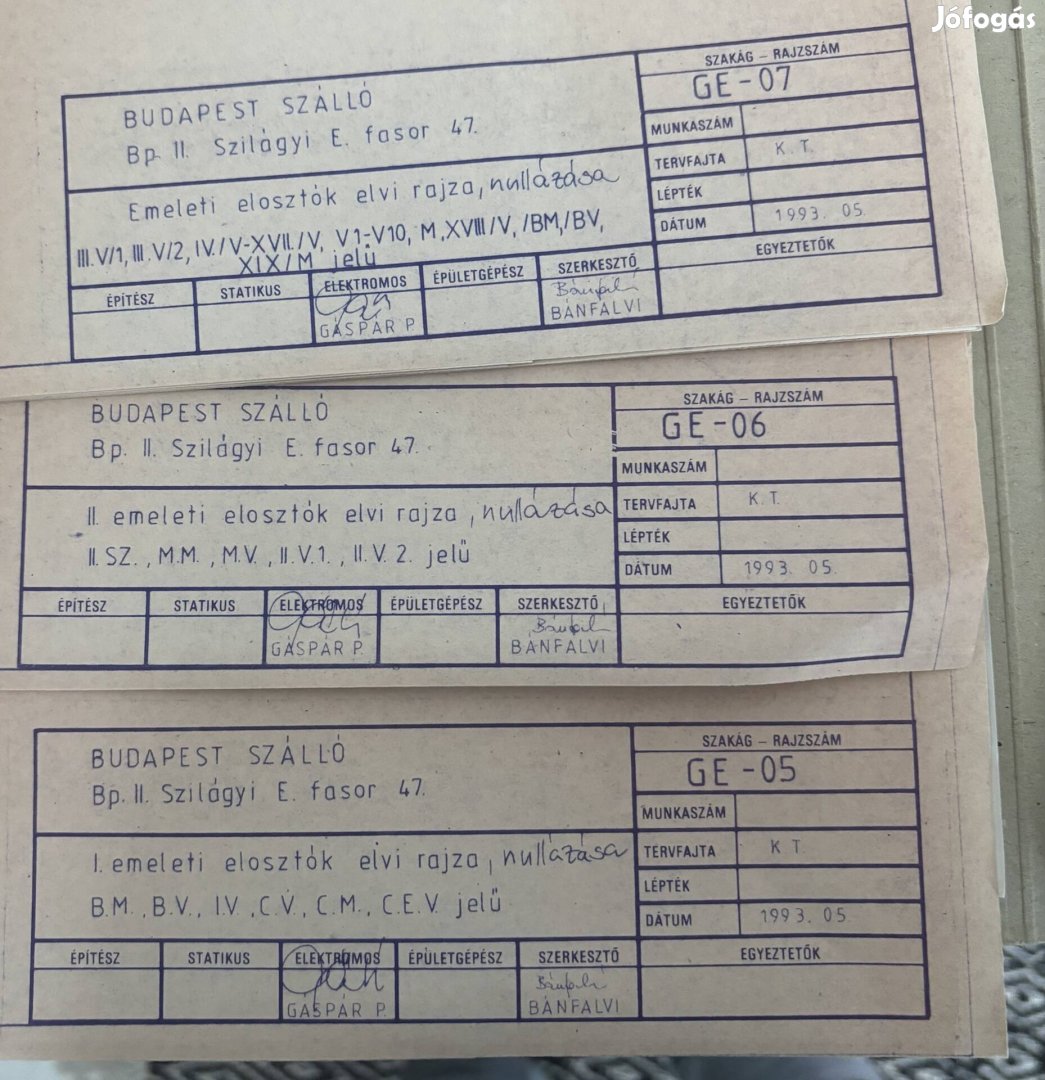 Jófogás
BUDAPEST SZÁLLÓ
Bp. II. Szilágyi E. fasor 47.
Emeleti elosztók elvi rajza, nullázása
III.V/1, III.V/2, IV./V-XVII./V, V1-V10, M, XVIII/V, /BM,/BV,
XIX/M jelű
ÉPÍTÉSZ
STATIKUS
ELEKTROMOS
GÁSPÁR P
ÉPÜLETGÉPÉSZ
SZERKESZTŐ
Bánfalvi
BÁNFALVI
SZAKÁG – RAJZSZÁM
GE-07
MUNKASZÁM
TERVFAJTA K.T.
LÉPTÉK
DÁTUM 1993. 05.
EGYEZTETŐK
BUDAPEST SZÁLLÓ
Bp. II. Szilágyi E. fasor 47.
II. emeleti elosztók elvi rajza, nullázása
II. SZ., M.M., M.V., II.V.1., II.V.2. jelű
ÉPÍTÉSZ
STATIKUS
ELEKTROMOS
GÁSPÁR P.
ÉPÜLETGÉPÉSZ
SZERKESZTŐ
Bánfalvi
BÁNFALVI
SZAKÁG – RAJZSZÁM
GE-06
MUNKASZÁM
TERVFAJTA K.T.
LÉPTÉK
DÁTUM 1993. 05.
EGYEZTETŐK
BUDAPEST SZÁLLÓ
Bp. II. Szilágyi E. fasor 47.
I. emeleti elosztók elvi rajza, nullázása
B.M., B.V., I.V, C.V, C.M., C.E.V. jelű
ÉPÍTÉSZ
STATIKUS
ELEKTROMOS
GÁSPÁR P.
ÉPÜLETGÉPÉSZ
SZERKESZTŐ
Bánfalvi
BÁNFALVI
SZAKÁG – RAJZSZÁM
GE-05
MUNKASZÁM
TERVFAJTA K T.
LÉPTÉK
DÁTUM 1993. 05.
EGYEZTETŐK